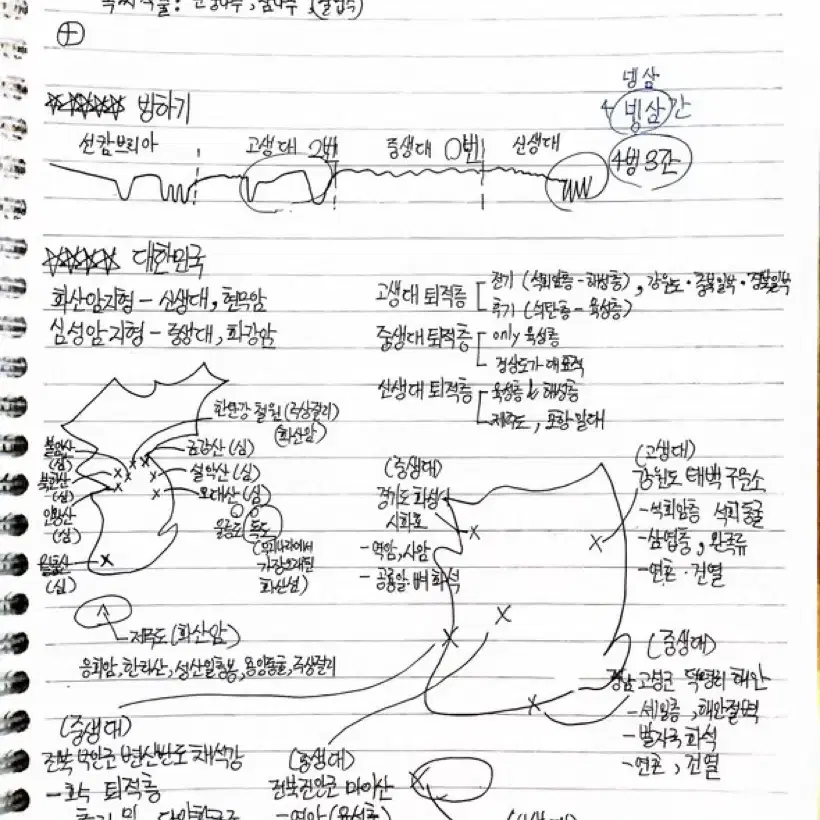 ☆☆☆☆☆ 빙하기
선캄브리아
고생대 2번
중생대 0번
신생대
빙삼
4 빙삼 간
4빙 3간
☆☆☆☆ 대한민국
화산암지형 - 신생대, 현무암
심성암 지형 - 중생대, 화강암
고생대 퇴적층
전기 (석회암층 - 해성층), 강원도 · 충북일부 · 경북일부
후기 (석탄층 - 육성층)
중생대 퇴적층
only 육성층
경상도가 대표적
신생대 퇴적층
육성층 & 해성층
제주도, 포항 일대
한탄강 철원 (주상절리)
(화산암)
불암산
(심)
북한산
(심)
인왕산
(심)
월출산
(심)
금강산 (심)
설악산 (심)
오대산 (심)
울릉도 독도
(우리나라에서
가장오래된
화산섬)
제주도 (화산암)
응회암, 한라산, 성산일출봉, 용암동굴, 주상절리
(중생대)
경기도 화성시
시화호
- 역암, 사암
- 공룡알 · 뼈 화석
(고생대)
강원도 태백 구문소
- 석회암층 석회동굴
- 삼엽충, 완족류
- 연흔 · 건열
(중생대)
경남 고성군 덕명리 해안
- 셰일층, 해안절벽
- 발자국 화석
- 연흔, 건열
(중생대)
전북 부안군 변산반도 채석강
- 호수 퇴적층
(중생대)
전북진안군 마이산
- 역암 (육성층)